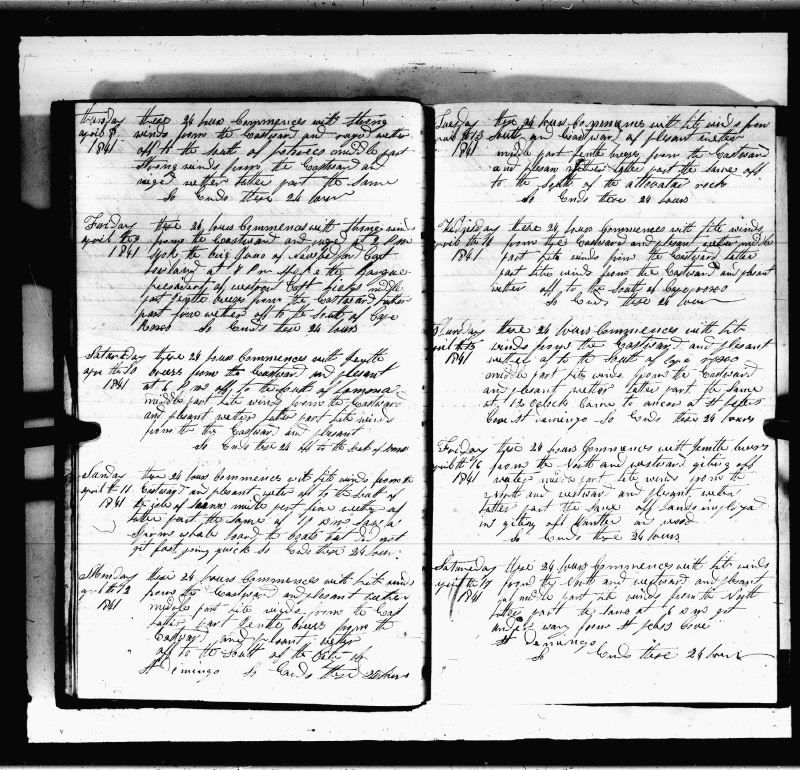 thursday these 24 hours Commences with strong
april 8 winds from the Eastward and ruged wether
1841 off to the South of middle part
strong winds from the Eastward and
ruged wether latter part the Same
So Ends these 24 hours
Friday these 24 hours Commences with strong wind
april the 9 from the Eastward and at 2 P m
1841 Spok the brig of Capt
at 4 P m Spoke the Barque
president of Capt middle
part gentle breeses from the Eastward latter
part fine wether off to the South of Cape
Roxo So Ends these 24 hours
Saturday these 24 hours Commences with gentle
april the 10 breeses from the Eastward and plesant
1841 at 6 P m off to the South of
middle part lite winds from the Eastward
and plesant wether latter part lite winds
from the Eastward and plesant
So Ends these 24 off to the South of
Sunday these 24 hours Commences with lite winds from the
april the 11 Eastward and plesant wether off to the South of
1841 the isle of middle part fine wether
latter part the same at 10 a m Saw a
Sperm whale Loard the boats but did not
get fast going quick So Ends these 24 hours
Monday these 24 hours Commences with lite winds
april th 12 from the Eastward and plesant wether
1841 middle part lite winds from the East
latter part gentle breeses from the
Eastward and plesant wether
off to the South of the
St demingo So Ends these 24 hours
Tuesday these 24 hours Commences with lite winds from
april th 13 South and Eastward of plesant wether
1841 middle part gentle breeses from the Eastward
and plesant wether latter part the same off
to the South of the altavalar rock
So Ends these 24 hours
Wedsday these 24 hours Commences with lite winds
april th 14 from the Eastward and plesant wether middle
1841 part lite winds from the Eastward latter
part lite winds from the Eastward and plesant
wether off to the South of
So Ends these 24 hours
thursday these 24 hours Commences with lite
april th 15 winds from the Eastward and plesant
1841 wether off to the South of
middle part lite winds from the Eastward
and plesant wether latter part the same
at 12 oclock Came to ancor at St
Cove St Domingo So Ends these 24 hours
Friday these 24 hours Commences with gentle breeses
april th 16 from the North and westward giting off
1841 water middle part lite winds from the
North and westward and plesant wether
latter part the same off
in giting off and wood
So Ends these 24 hours
Saturday these 24 hours Commences with lite winds
april th 17 from the North and westward and plesant
1841 middle part lite winds from the North
latter part the Same at 6 a m got
under way from St Cove
St domingo
So Ends these 24 hours